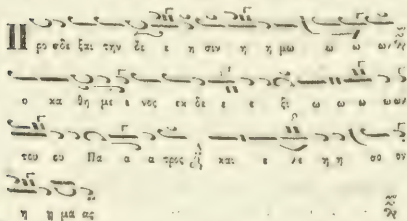 Προ σδε ξαι την δε ε η σιν η η μω ω ω ω
ο κα θη με ε νος εκ δε ε ε ξι ω ω ω ω
του ου Πα α α τρος και ε λε η η σο ον
η η μα ας